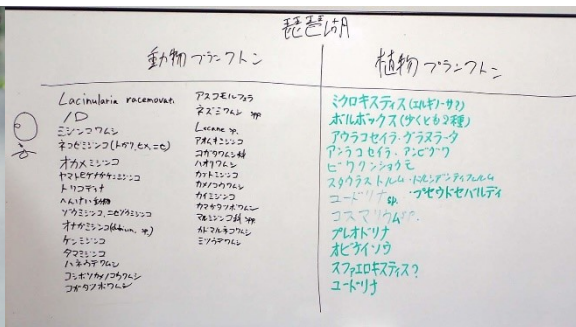 琵琶湖
動物プランクトン
Lacinularia racemovat.
ミジンコワムシ
オカメミジンコ
トリコディナ
へんけい動物
ゾウミジンコ、ニセゾウミジンコ
オナガミジンコ
ケンミジンコ
タマミジンコ
ハネウデワムシ
コシボソカメノコウワムシ
コガタツボワムシ
アスコモルファ
ネズミワムシ spp
Lecane sp.
アオムキミジンコ
コガタワムシ
ハオリワムシ
カブトミジンコ
カメノコウワムシ
カイミジンコ
カマガタツボワムシ
マルミジンコ科 spp
カドマルネコワムシ
ミツウデワムシ
植物プランクトン
ミクロキスティス(エルギノーサ?)
ボルボックス(少くとも2種)
アウラコセイラ・グラヌラータ
アンラコセイラ・アンビグワ
ビワクンショウモ
スタウラストルム・ドルシデンティフェルム
ユードリナ sp. ・プセウドセバルディ
コスマリウム sp.
プレオドリナ
オビケイソウ
スファエロキスティス?
ユードリナ